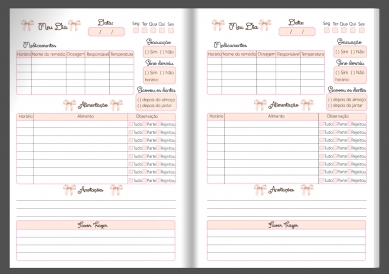 Meu Dia
Data:
/ /
Seg Ter Qua Qui Sex
Medicamentos
Horário Nome do remédio Dosagem Responsável Temperatura
Evacuação
( ) Sim ( ) Não
Sono dormiu
( ) Sim ( ) Não
horário:
Escovou os dentes
( ) depois do almoço
( ) depois do jantar
Alimentação
Horário Alimento Observação
Tudo Parte Rejeitou
Tudo Parte Rejeitou
Tudo Parte Rejeitou
Tudo Parte Rejeitou
Tudo Parte Rejeitou
Tudo Parte Rejeitou
Tudo Parte Rejeitou
Tudo Parte Rejeitou
Anotações
Favor Trazer
Meu Dia
Data:
/ /
Seg Ter Qua Qui Sex
Medicamentos
Horário Nome do remédio Dosagem Responsável Temperatura
Evacuação
( ) Sim ( ) Não
Sono dormiu
( ) Sim ( ) Não
horário:
Escovou os dentes
( ) depois do almoço
( ) depois do jantar
Alimentação
Horário Alimento Observação
Tudo Parte Rejeitou
Tudo Parte Rejeitou
Tudo Parte Rejeitou
Tudo Parte Rejeitou
Tudo Parte Rejeitou
Tudo Parte Rejeitou
Tudo Parte Rejeitou
Tudo Parte Rejeitou
Anotações
Favor Trazer